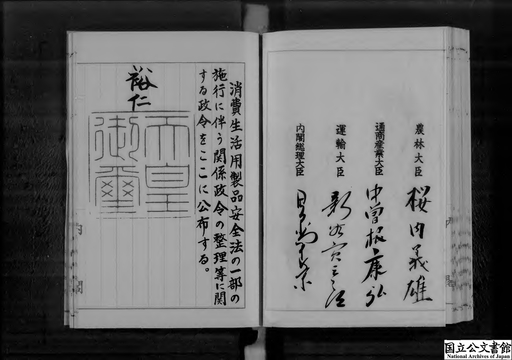 農林大臣 桜内義雄
通商産業大臣 中曽根康弘
運輸大臣 新谷寅三郎
内閣総理大臣
消費生活用製品安全法の一部の
施行に伴う関係政令の整理等に関
する政令をここに公布する。
裕仁
天皇
御璽
国立公文書館
National Archives of Japan